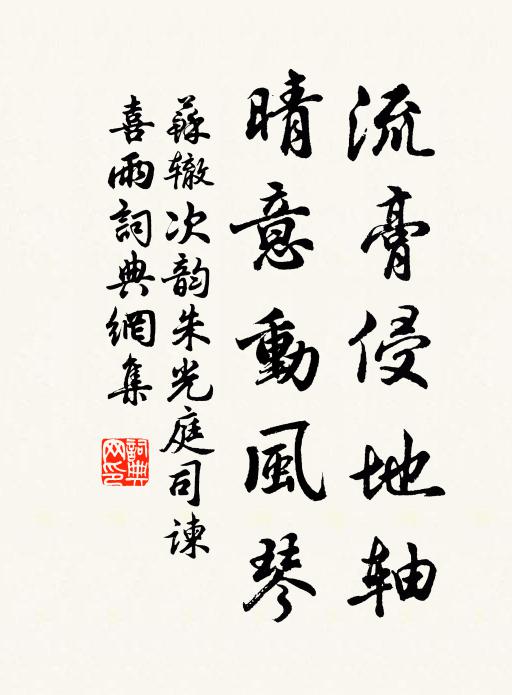 流膏侵地轴
晴意動風琴
蘇辙次韵朱光庭司谏
喜雨詞典網集
詞典网印